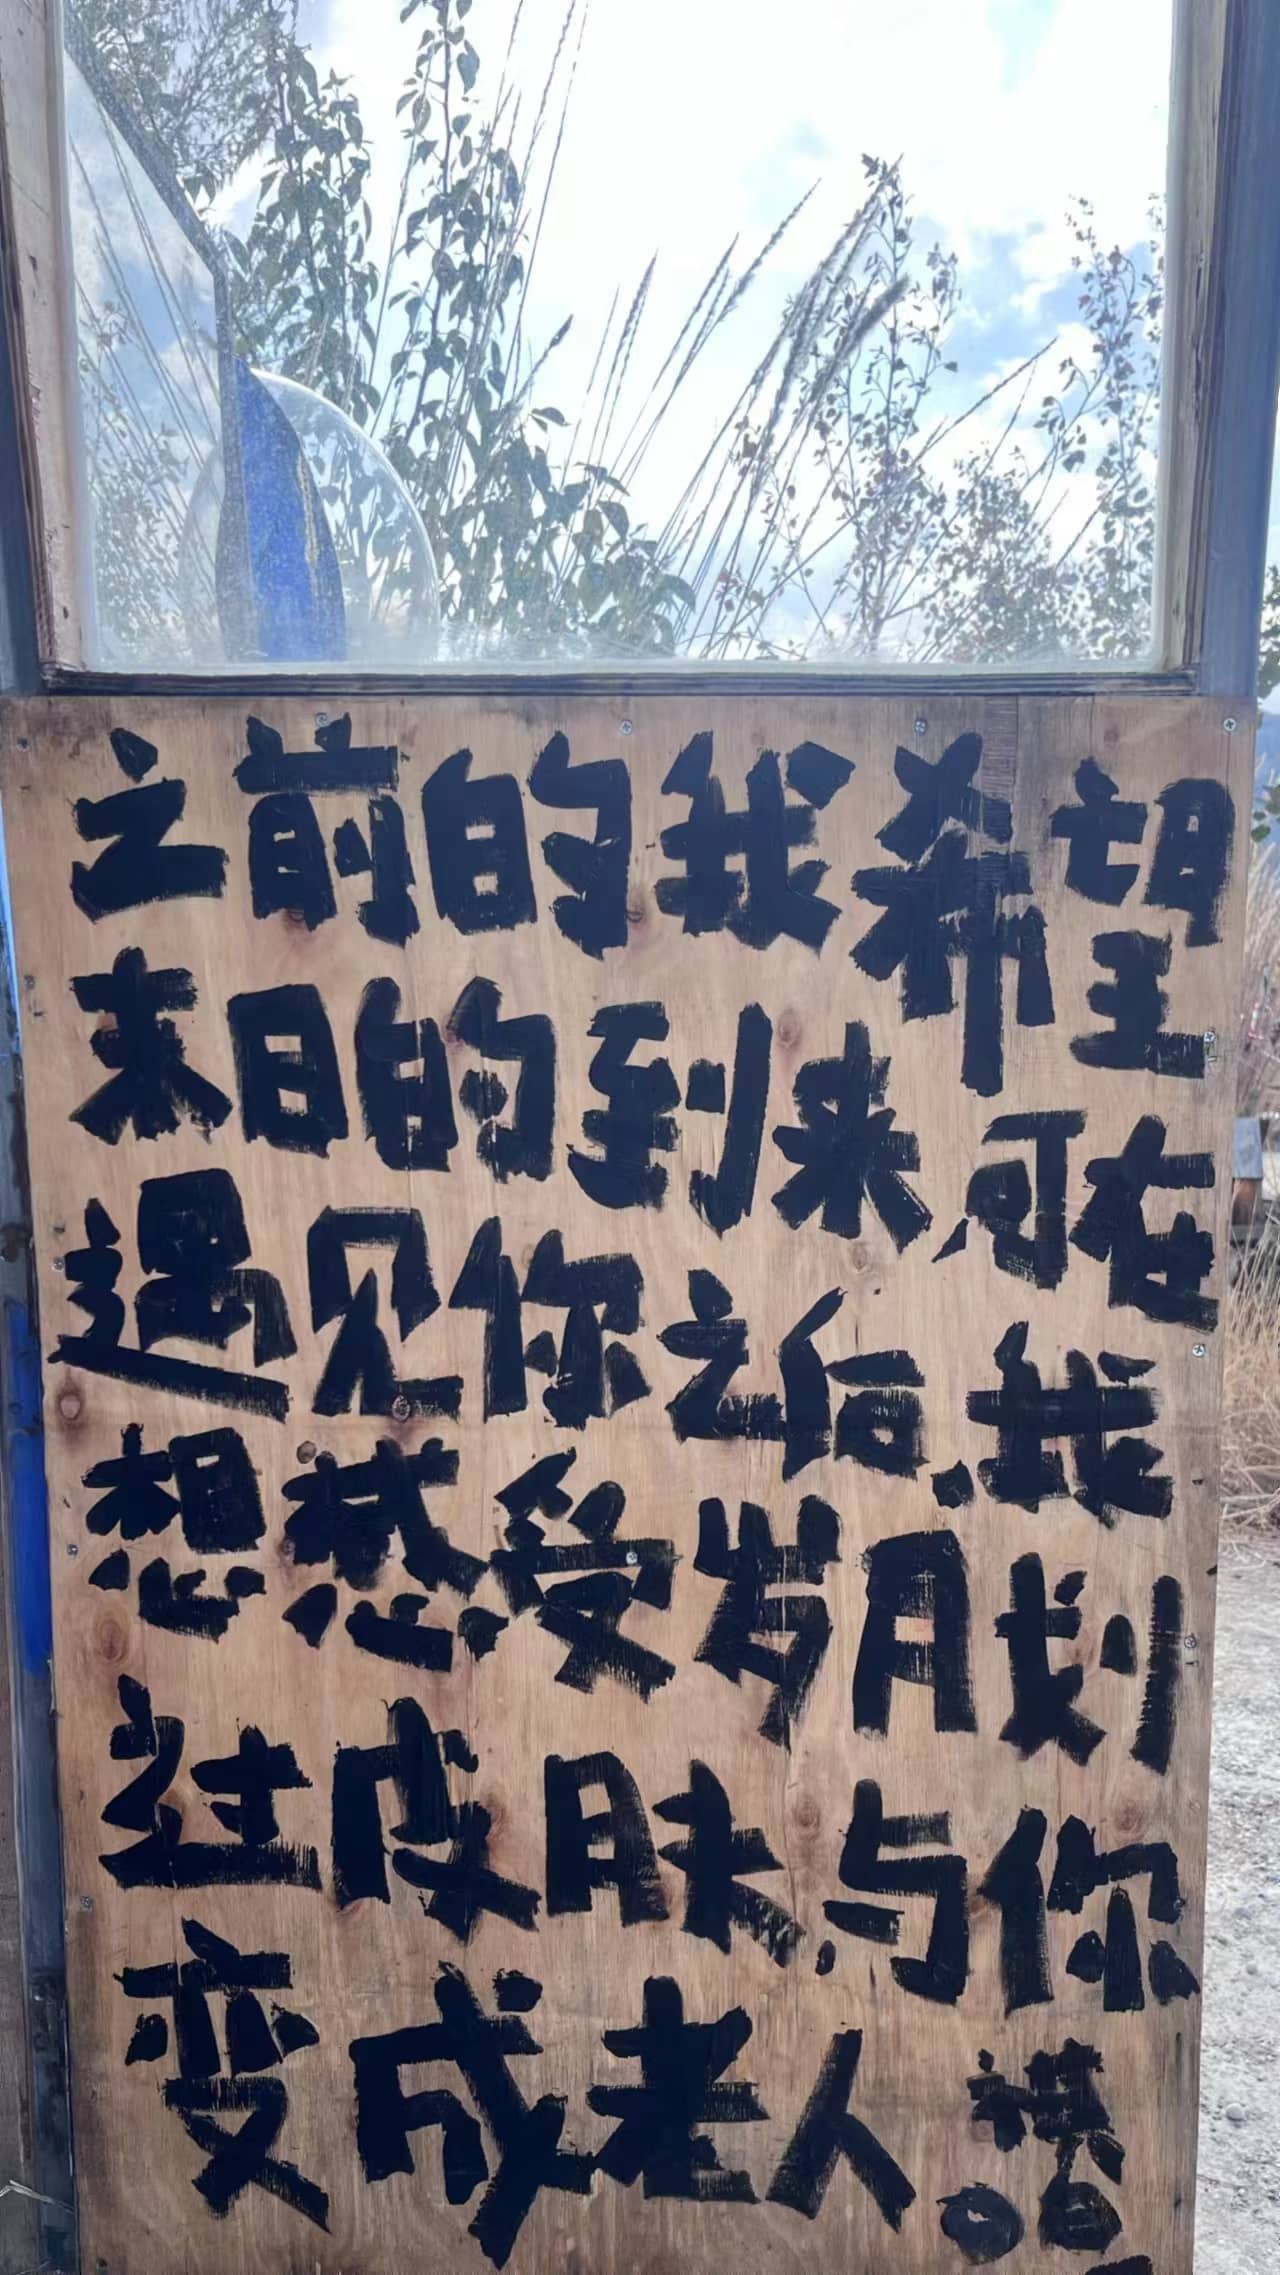 之前的我希望
末日的到来,可在
遇见你之后.我
想感受岁月划
过皮肤,与你
变成老人。